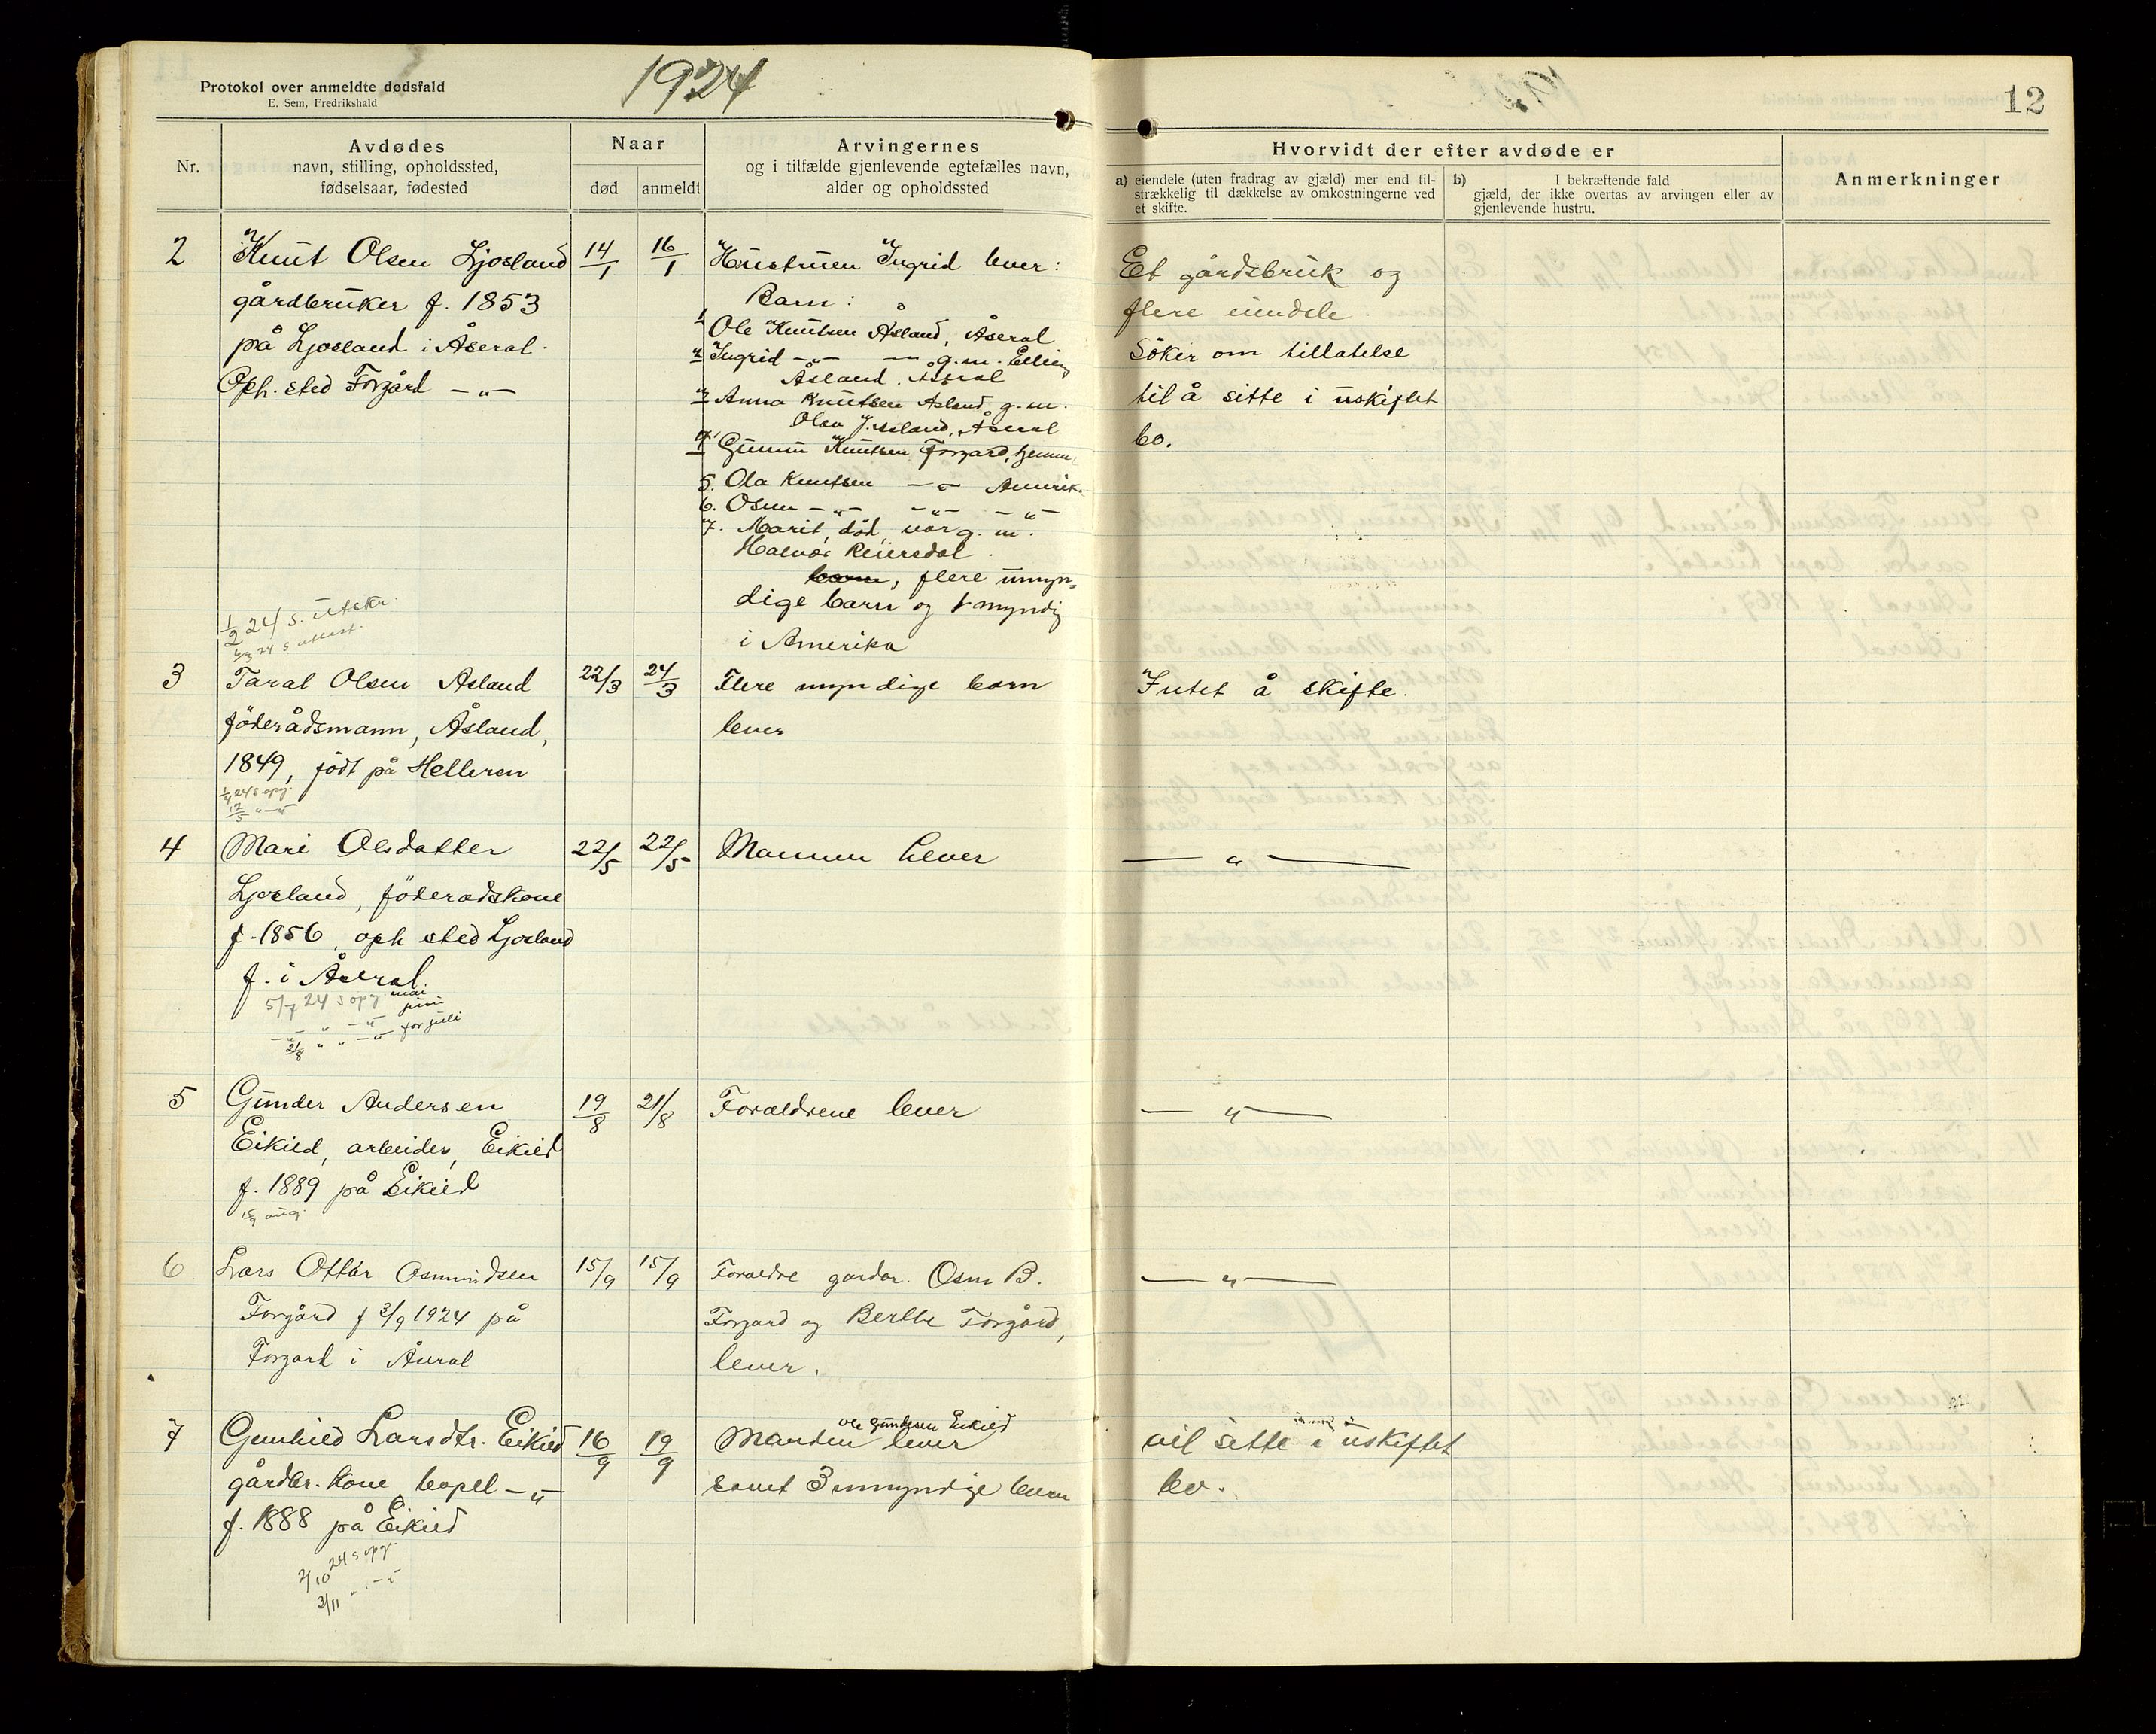 Protokol over anmeldte dødsfald
E. Sem, Fredrikshald
1924
12
Nr.
Avdødes
navn, stilling, opholdssted,
fødselsaar, fødested
Naar
død
anmeldt
Arvingernes
og i tilfælde gjenlevende egtefælles navn,
alder og opholdssted
Hvorvidt der efter avdøde er
a) eiendele (uten fradrag av gjæld) mer end til-
strækkelig til dækkelse av omkostningerne ved
et skifte.
b) I bekræftende fald
gjæld, der ikke overtas av arvingen eller av
gjenlevende hustru.
Anmerkninger
2
Knut Olsen Ljosland
gårdbruker f. 1853
på Ljosland i Åseral.
Oph. sted Forgård -"-
14/1
16/1
Hustruen Ingrid lever:
Barn:
1 Ole Knutsen Åsland, Åseral
2 Ingrid -"- -"- g.m. Elling
Åsland. Åseral
3 Anna Knutsen Åsland g.m.
Olav J. Åsland, Åseral
4 Gunnu Knutsen Forgard, hjemme
5. Ola Knutsen -"- Amerika
6. Osmu -"- -"- -"-
7. Marit, död, var g. m.
Halvor Reiersdal.
barn, flere umyn-
dige barn og 1 myndig
i Amerika
Et gårdsbruk og
flere eiendele.
Söker om tillatelse
til å sitte i uskiftet
bo.
1/2 24 s. utskr.
24 s attest.
3
Taral Olsen Åsland
föderådsmann, Åsland,
1849, födt på Helleren
1/4 24 s opg.
12/5 -"-
22/3
24/3
Flere myndige barn
lever
Intet å skifte.
4
Mari Olsdatter
Ljosland, föderadskone
f. 1856, oph sted Ljosland
f. i Åseral.
5/7 24 s opg mai
juni
-"- " -"- for juli
2/8 " " -"-
22/5
22/5
Mannen lever
-"-
5
Gunder Andersen
Eikild, arbeider, Eikild
f. 1889 på Eikild
15/9 aug.
19/8
21/8
Forældrene lever
-"-
6
Lars Ottar Osmundsen
Forgård f 3/9 1924 på
Forgard i Åseral
15/9
15/9
Forældre gardbr. Osm B.
Forgard og Berthe Forgård,
lever.
-"-
7
Gunhild Larsdtr. Eikild
gårdbr. kone, bopel -"-
f. 1888 på Eikild
2/10 24 s opg.
3/11 " -"-
16/9
19/9
Ole Gundersen Eikild
Manden lever
samt 3 umyndige barn
vil sitte i uskiftet
bo.